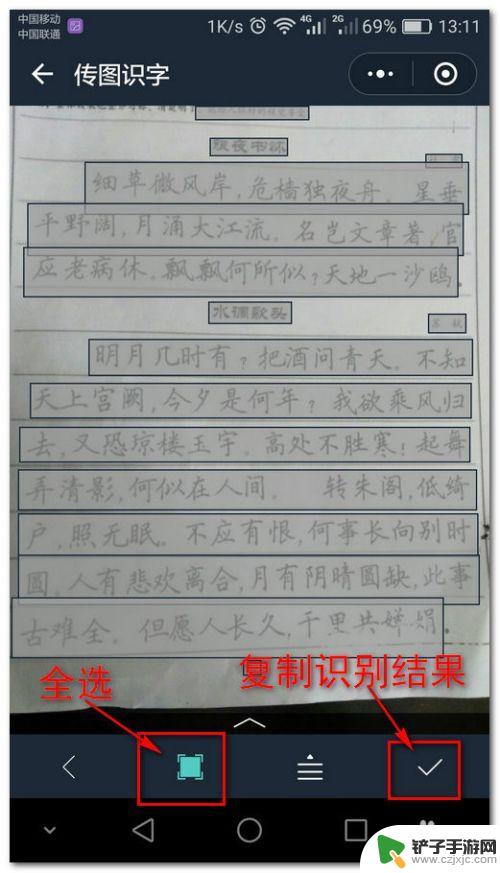 中国移动
中国联通
1K/s 4G 2G 69% 13:11
传图识字
水调歌头
细草微风岸,危樯独夜舟。星垂
平野阔,月涌大江流。名岂文章著,官
应老病休。飘飘何所似?天地一沙鸥。
明月几时有?把酒问青天。不知
天上宫阙,今夕是何年?我欲乘风归
去,又恐琼楼玉宇。高处不胜寒!起舞
弄清影,何似在人间。 转朱阁,低绮
户,照无眠。不应有恨,何事长向别时
圆。人有悲欢离合,月有阴晴圆缺,此事
古难全。但愿人长久,千里共婵娟。
全选
复制识别结果
铲子手游网
www.czjxjc.com